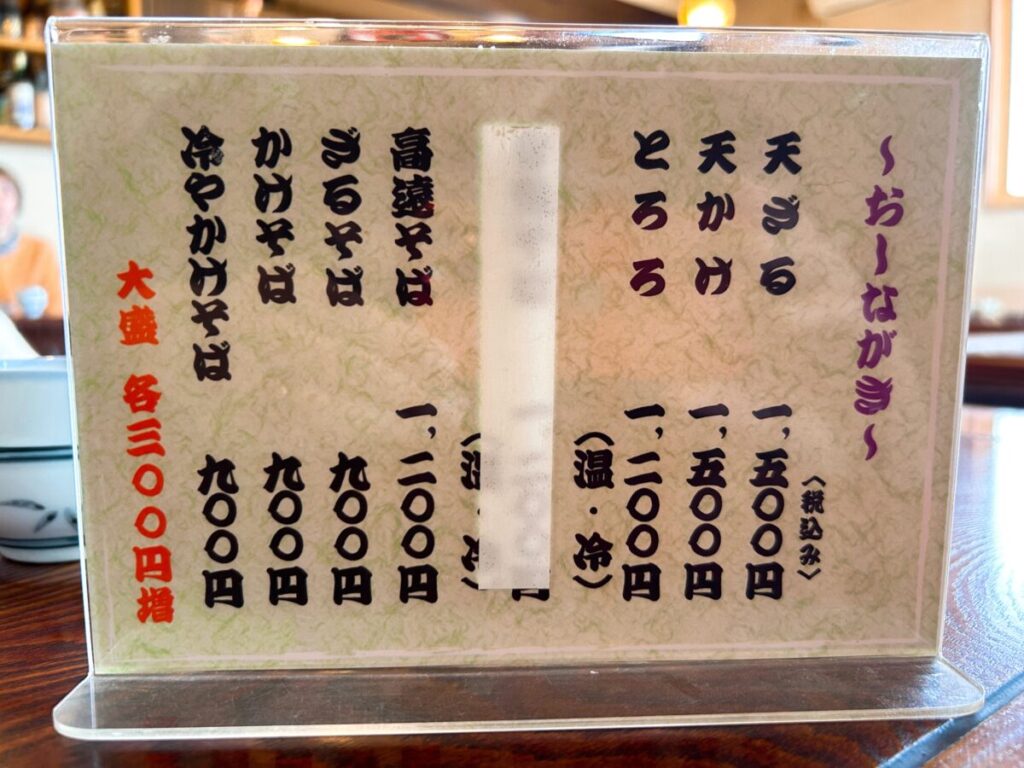 ～お～ながき～
〈税込み〉
天ざる 一,五〇〇円
天かけ 一,五〇〇円
とろろ 一,二〇〇円
（温・冷）
円
高遠そば 一,二〇〇円
ざるそば 九〇〇円
かけそば 九〇〇円
冷やかけそば 九〇〇円
大盛 各三〇〇円増